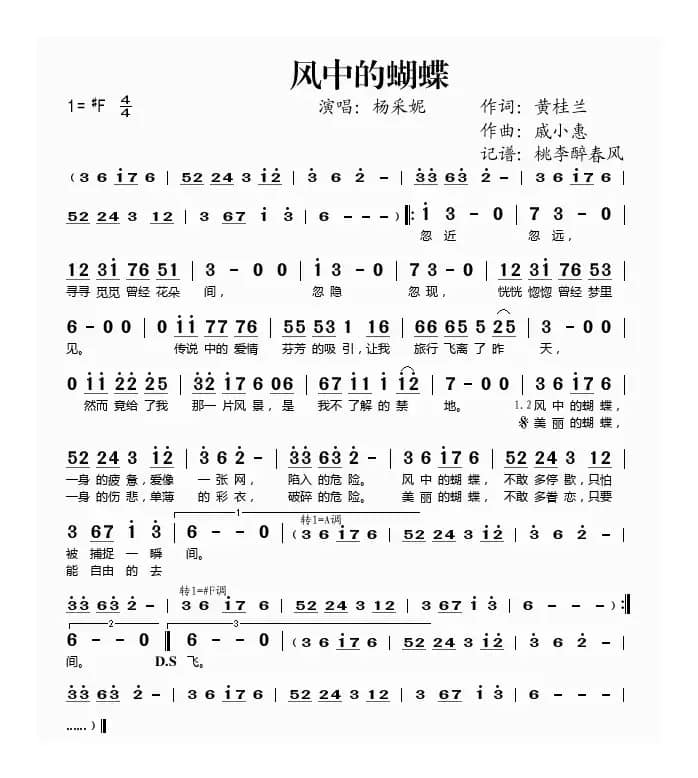 风中的蝴蝶
1= #F 4/4 演唱：杨采妮 作词：黄桂兰
作曲：戚小惠
记谱：桃李醉春风
( 3 6 i7 6 | 52 24 3 i2 | 3 6 2 - | 33 63 2 - | 3 6 i7 6 |
52 24 3 12 | 3 67 i 3 | 6 - - - ) ‖: i 3 - 0 | 7 3 - 0 |
忽近 忽远，
12 3i 76 51 | 3 - 0 0 | i 3 - 0 | 7 3 - 0 | 12 3i 76 53 |
寻寻 觅觅 曾经 花朵 间， 忽隐 忽现， 恍恍 惚惚 曾经 梦里
6 - 0 0 | 0 ii 77 76 | 55 53 1 16 | 66 65 5 25 | 3 - 0 0 |
见。 传说 中的 爱情 芬芳 的吸 引，让我 旅行 飞离 了 昨 天，
0 ii 22 25 | 32 17 6 06 | 67 i1 1 12 | 7 - 0 0 | 3 6 i7 6 |
然而 竟给 了我 那一 片风 景，是 我不 了解 的 禁 地。 1.2风 中 的蝴 蝶，
𝄋美 丽 的蝴 蝶，
52 24 3 i2 | 3 6 2 - | 33 63 2 - | 3 6 i7 6 | 52 24 3 12 |
一身 的疲 惫，爱像 一 张 网， 陷入 的危 险。 风 中 的蝴 蝶， 不敢 多停 歇，只怕
一身 的伤 悲，单薄 的 彩 衣， 破碎 的危 险。 美 丽 的蝴 蝶， 不敢 多眷 恋，只要
1 转1=A调
3 67 i 3 | 6 - - 0 | ( 3 6 i7 6 | 52 24 3 12 | 3 6 2 - |
被 捕捉 一 瞬 间。
能 自由 的 去
转1=#F调
33 63 2 - | 3 6 i7 6 | 52 24 3 12 | 3 67 i 3 | 6 - - - ) :‖
2 3
6 - - 0 ‖ 6 - - 0 | ( 3 6 i7 6 | 52 24 3 i2 | 3 6 2 - |
间。 D.S 飞。
33 63 2 - | 3 6 i7 6 | 52 24 3 12 | 3 67 i 3 | 6 - - - |
…… ) ‖